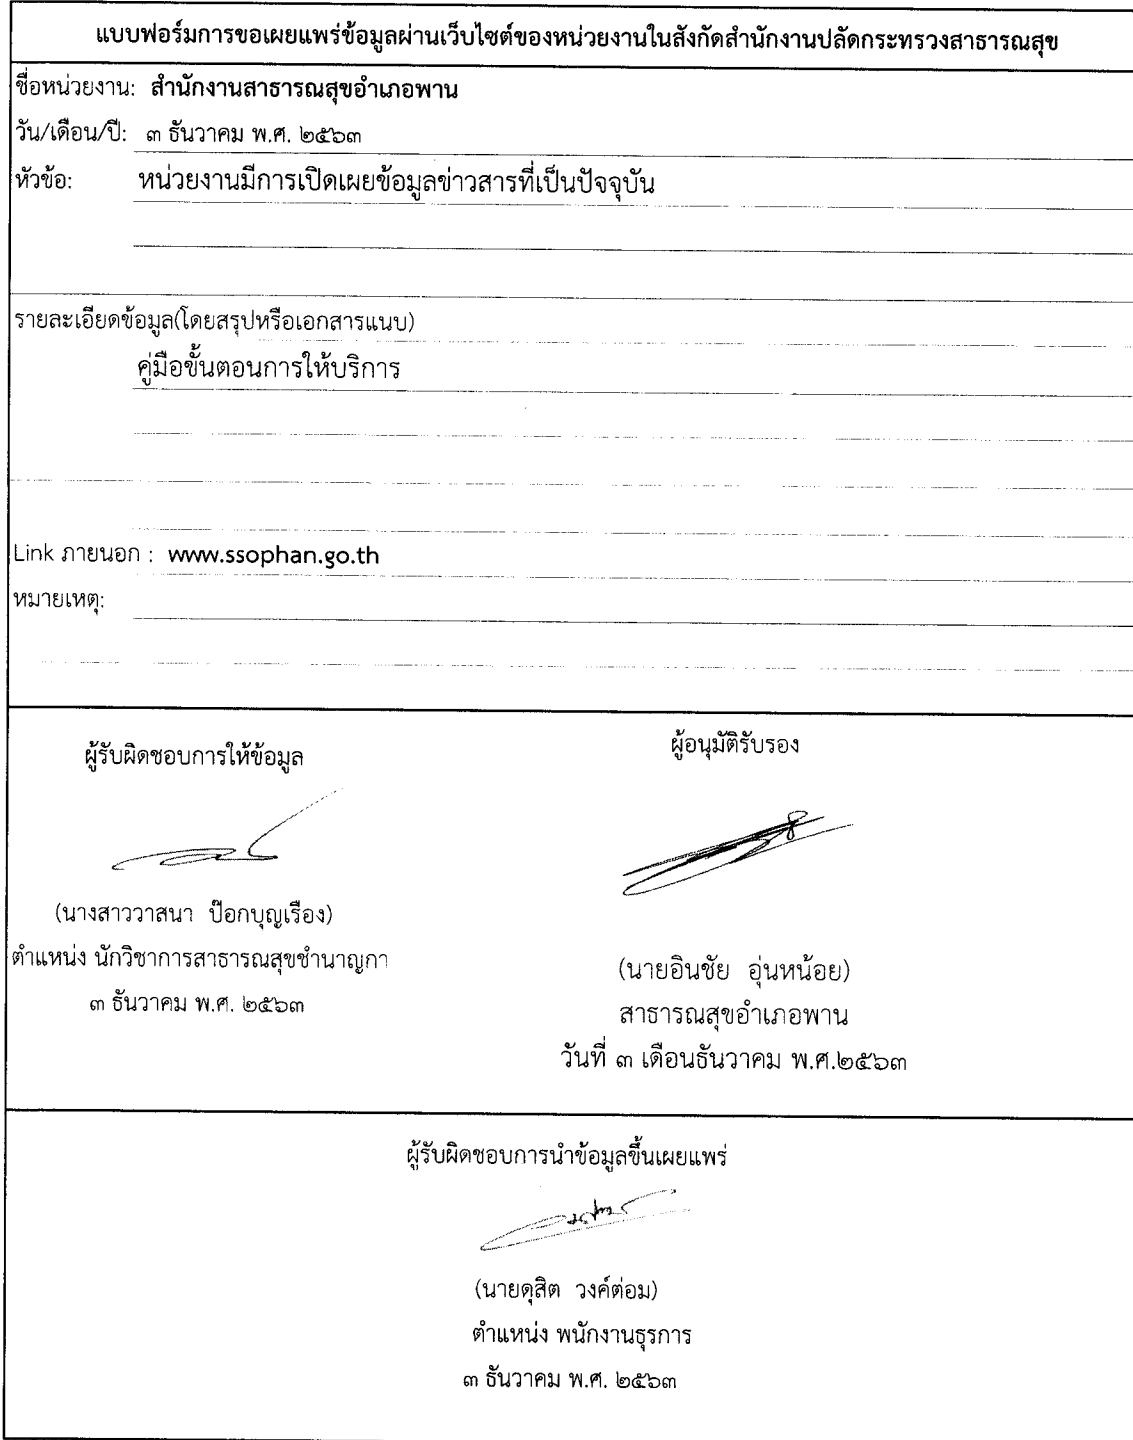 แบบฟอร์มการขอเผยแพร่ข้อมูลผ่านเว็บไซต์ของหน่วยงานในสังกัดสำนักงานปลัดกระทรวงสาธารณสุข
ชื่อหน่วยงาน: สำนักงานสาธารณสุขอำเภอพาน
วัน/เดือน/ปี: ๓ ธันวาคม พ.ศ. ๒๕๖๓
หัวข้อ: หน่วยงานมีการเปิดเผยข้อมูลข่าวสารที่เป็นปัจจุบัน
รายละเอียดข้อมูล(โดยสรุปหรือเอกสารแนบ)
คู่มือขั้นตอนการให้บริการ
Link ภายนอก : www.ssophan.go.th
หมายเหตุ:
ผู้รับผิดชอบการให้ข้อมูล
(นางสาววาสนา ป๊อกบุญเรือง)
ตำแหน่ง นักวิชาการสาธารณสุขชำนาญกา
๓ ธันวาคม พ.ศ. ๒๕๖๓
ผู้อนุมัติรับรอง
(นายอินชัย อุ่นหน้อย)
สาธารณสุขอำเภอพาน
วันที่ ๓ เดือนธันวาคม พ.ศ.๒๕๖๓
ผู้รับผิดชอบการนำข้อมูลขึ้นเผยแพร่
(นายดุสิต วงค์ต่อม)
ตำแหน่ง พนักงานธุรการ
๓ ธันวาคม พ.ศ. ๒๕๖๓